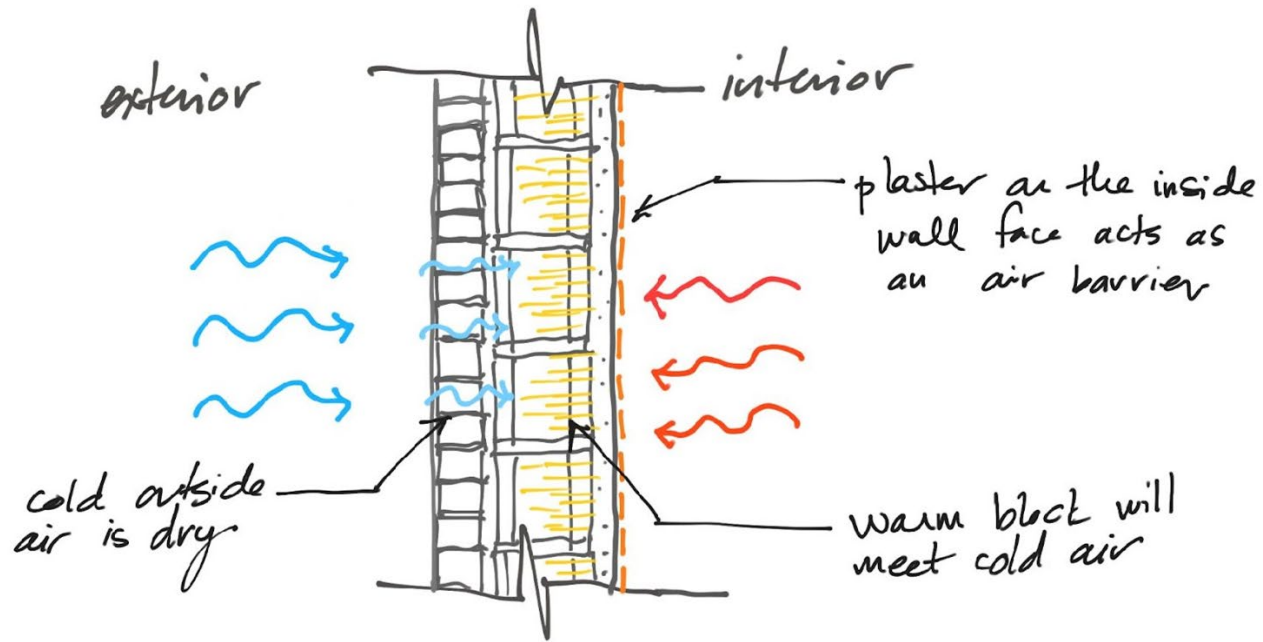 exterior
interior
plaster on the inside
wall face acts as
an air barrier
cold outside
air is dry
warm block will
meet cold air